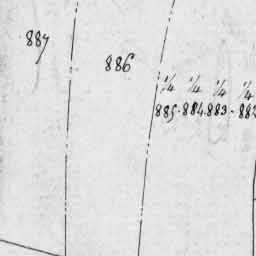 887
886
1/4 1/4 1/4 1/4
885.884.883.882